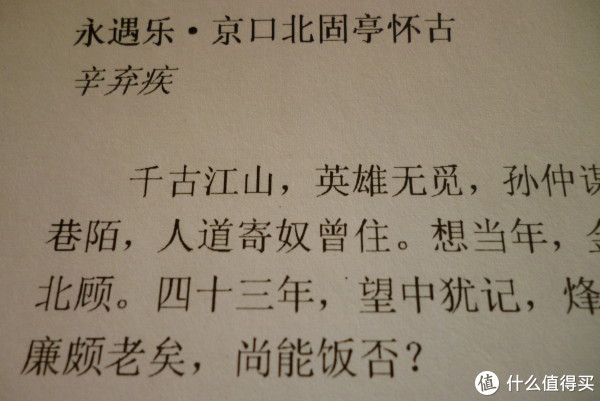 永遇乐·京口北固亭怀古
辛弃疾
千古江山，英雄无觅，孙仲谋
巷陌，人道寄奴曾住。想当年，金
北顾。四十三年，望中犹记，烽
廉颇老矣，尚能饭否？
值 什么值得买